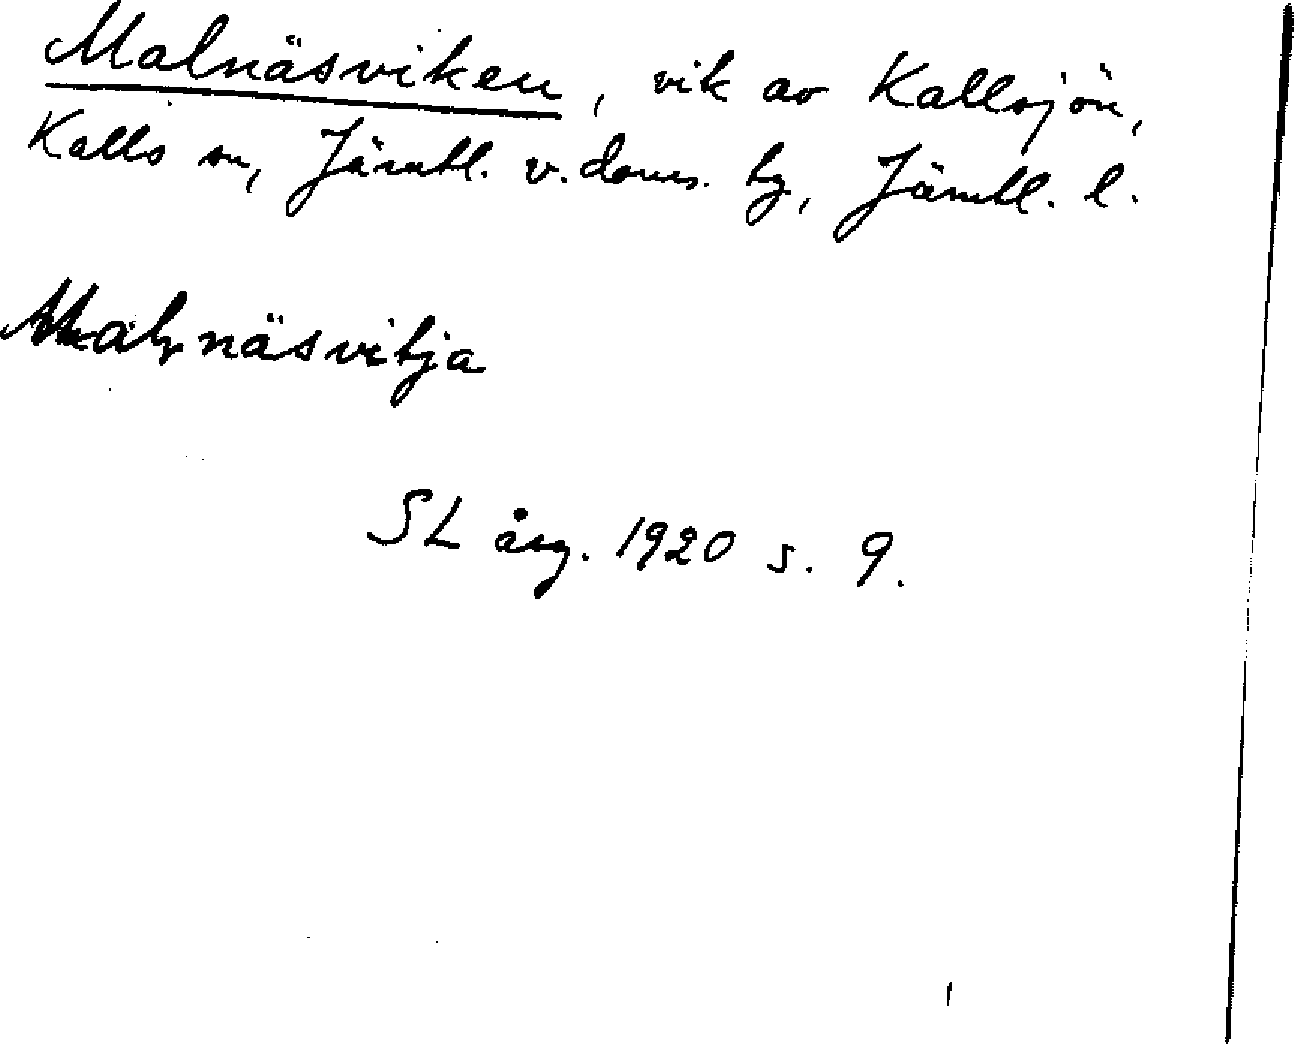 Malnäsviken, vik av Kallsjön,
Kalls sn, Jämtl. v. doms. tg, Jämtl. l.
Malnäsvitja
SL årg. 1920 s. 9.